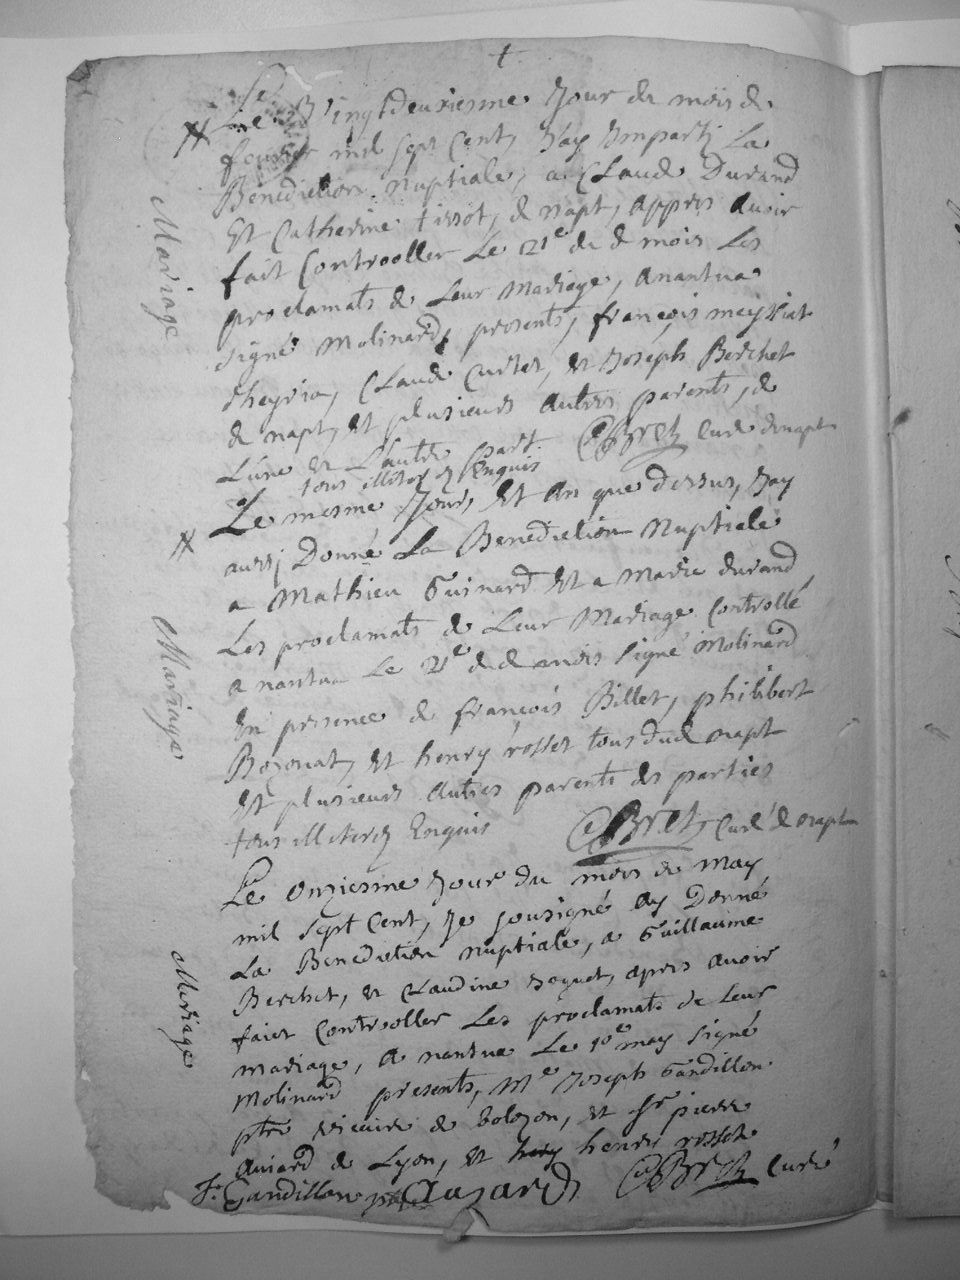 Le Vingtdeuxiesme Jour du mois de
mil sept Cent, J'ay Imparti La
Benediction Nuptiale, a Claude Durand
Et Catherine tissot, de napt, appres avoir
fait Controoller Le 21e du d mois Les
proclamats de Leur Mariage, A nantua
signé Molinard, presents, françois
Claude Curtet, et Joseph Berchet
de napt, et plusieurs Autres parents, de
L'une et L'autre part CBret Curé de napt
tous illiterez Enquis
Le mesme Jour, Et An que dessus, Jay
aussj Donné La Benediction Nuptiale
a Mathieu Guinard Et a Marie durand,
Les proclamats de Leur Mariage Controllé
a nantua Le 21e dud mois signé Molinard
En presence de françois Billet, philibert
Bozonat, Et henry rosset tous dud napt
Et plusieurs Autres parents des parties
tous illiterez Enquis CBret Curé de napt
Le Onziesme Jour du mois de May
mil sept Cent, Je sousigné Ay Donné
La Benediction nuptiale, a Guillaume
Berchet, et Claudine apres avoir
faict Controoller Les proclamats de Leur
mariage, A nantua Le 10e may signé
Molinard presents, Me Joseph Gandillon
ptre vicaire de bolozon, et sr pierre
de Lyon, et henry rosset
Gandillon CBret Curé
Mariage
Mariage
Mariage